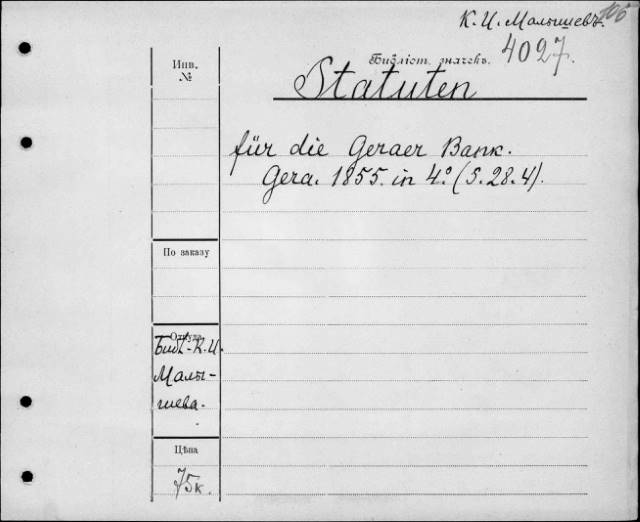 К. И. Малышевъ.
106
Инв.
№
Библіот. значекъ.
4027.
Statuten
für die Geraer Bank.
Gera. 1855. in 4.º (S. 28. 4).
По заказу
Откуда
Библ. К. И.
Малы-
шева.
Цѣна
75 к.